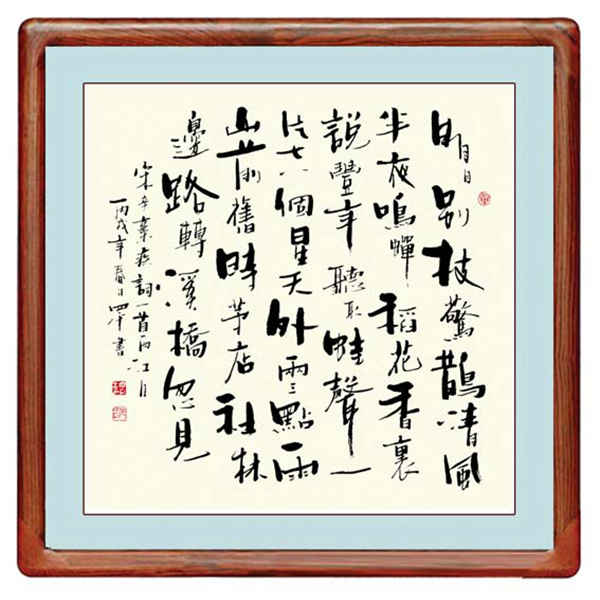 明月別枝驚鵲清風
半夜鳴蟬稻花香裏
說豐年聽取蛙聲一
片七八個星天外兩三點雨
山前舊時茅店社林
邊路轉溪橋忽見
宋辛棄疾詞一首西江月
丙戌年夏日書